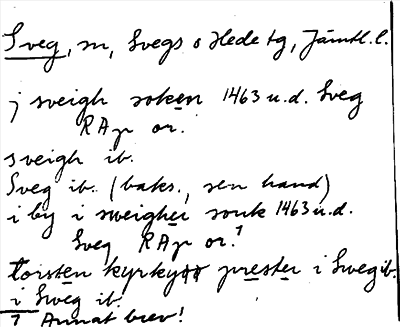 Sveg, sn, Svegs o Hede tg, Jämtl. l.
j sveigh soken 1463 u.d. Sveg
RAp or.
sveigh ib.
Sveg ib. (baks., sen hand)
i by i sweigher sonk 1463 u.d.
Sveg RAp or.¹
torsten kyrky prester i Sweg ib.
i Sweg ib.
1 Annat brev!